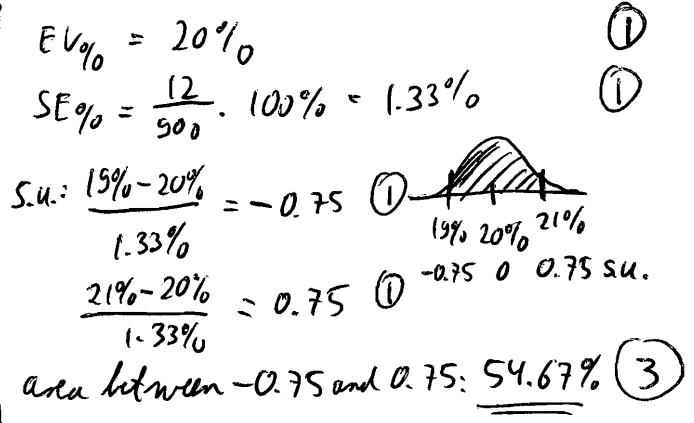 EV% = 20% ①
SE% = 12/900 · 100% = 1.33% ①
s.u.: 19%-20%/1.33% = -0.75 ①
19% 20% 21%
-0.75 0 0.75 s.u.
21%-20%/1.33% = 0.75 ①
area between -0.75 and 0.75: 54.67% ③